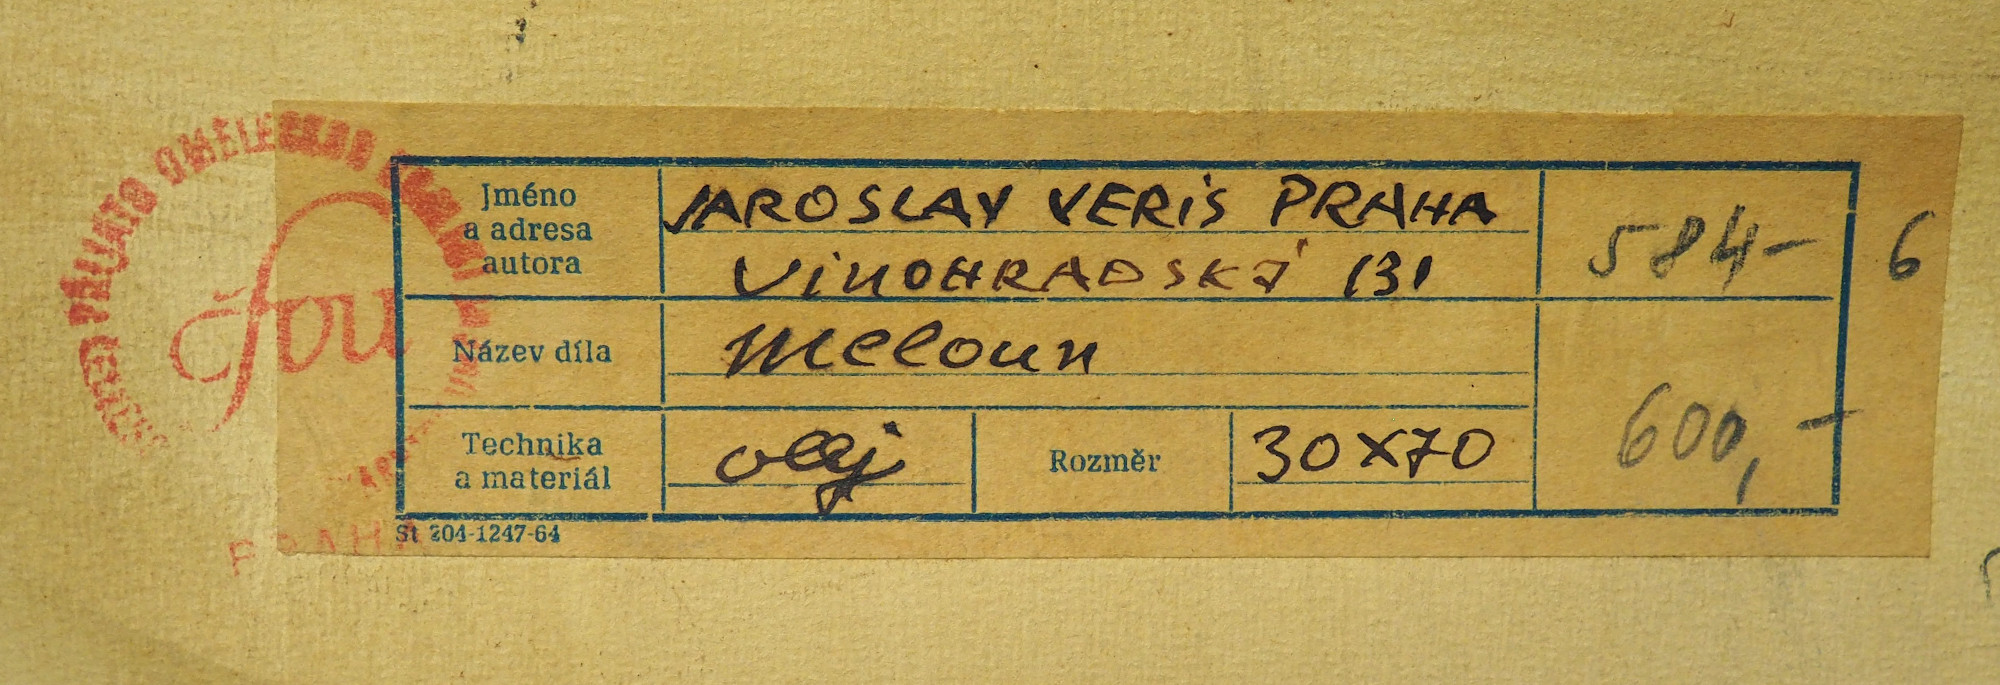 PŘIJATO UMĚLECKOU
čfvu
PRAHA
Jméno
a adresa
autora
JAROSLAV VERIS PRAHA
VINOHRADSKÁ 131
584-
6
Název díla
Meloun
600,-
Technika
a materiál
olej
Rozměr
30X70
St 204-1247-64